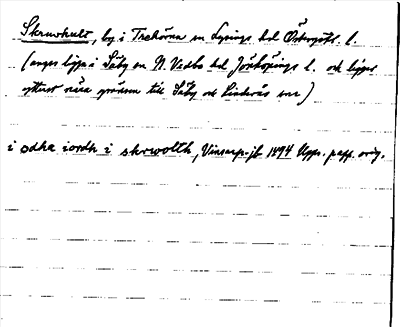 Skruvhult, by i Trehörna sn Lysings hd Östergötl. l.
(anges ligga i Säby sn N. Vedbo hd Jönköpings l. och ligger
ytterst nära gränsen till Säby och Linderås snr)
i odha iordh i skrwolth, Vinsarp-jb 1494 Upps. papp. orig.